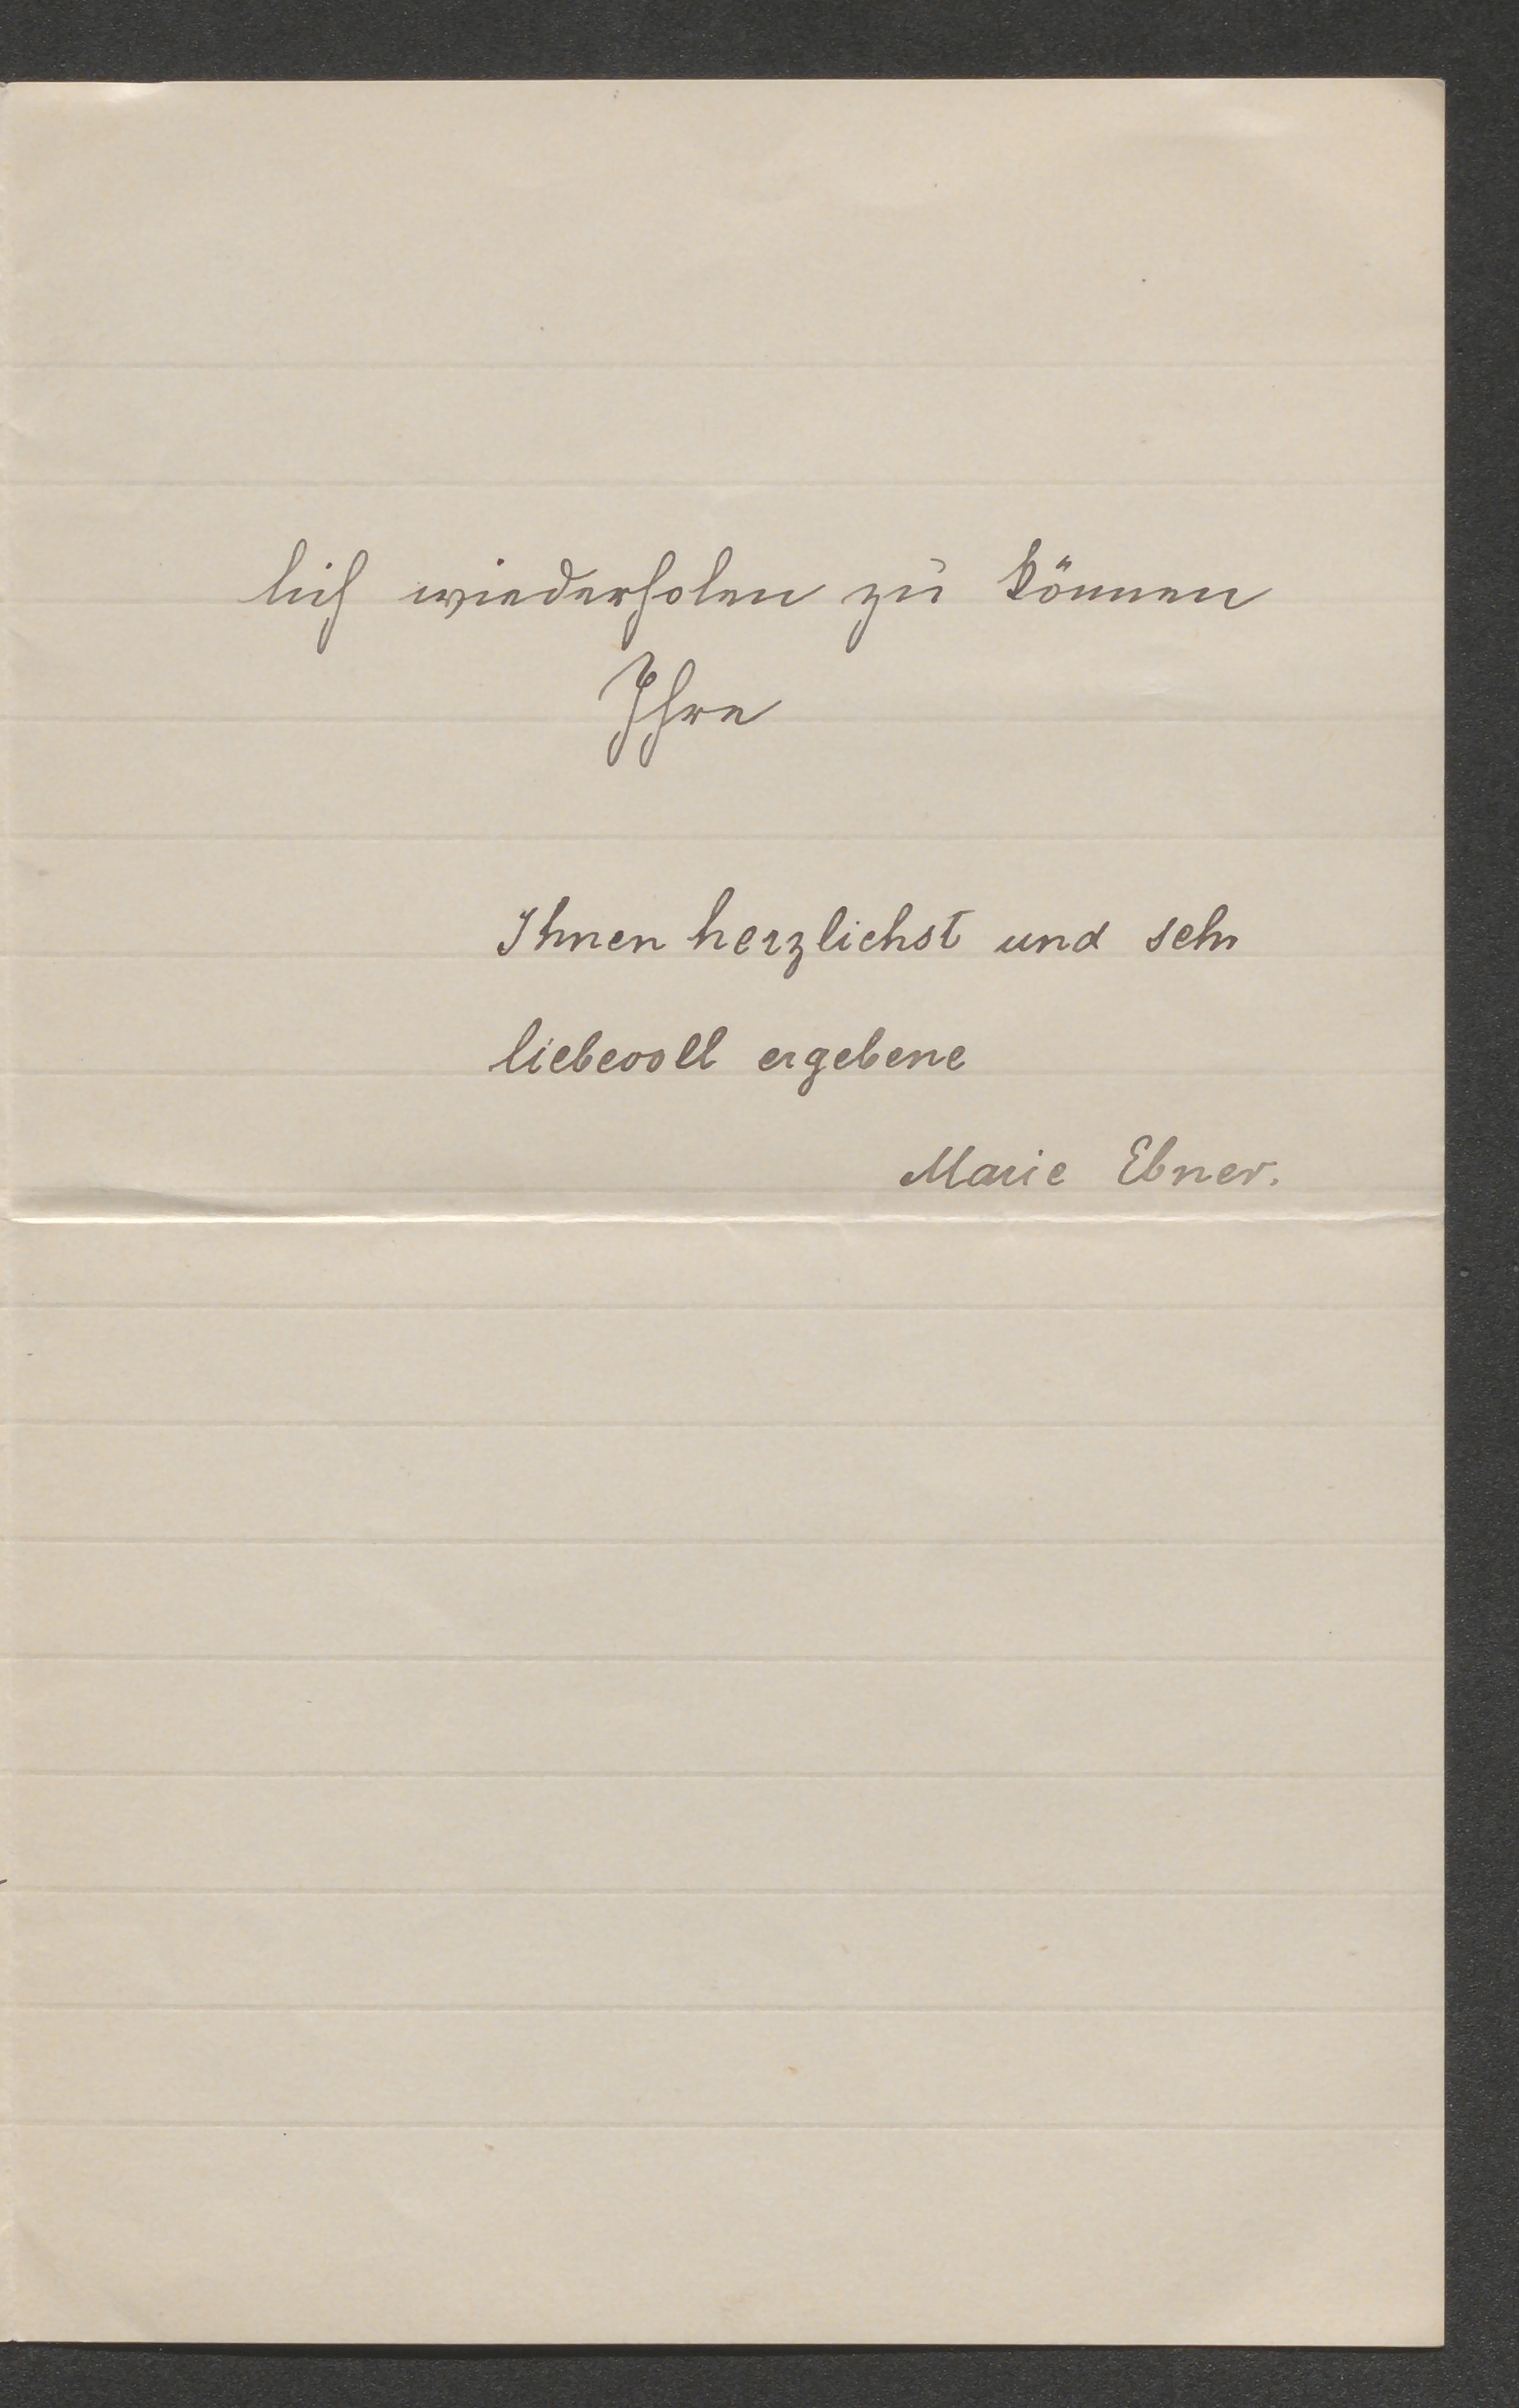 lich wiederholen zu können
Ihre
Ihnen herzlichst und sehr
liebevoll ergebene
Marie Ebner.